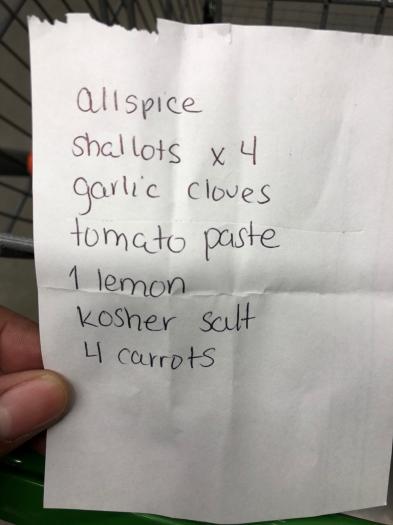 allspice
shallots x 4
garlic cloves
tomato paste
1 lemon
kosher salt
4 carrots